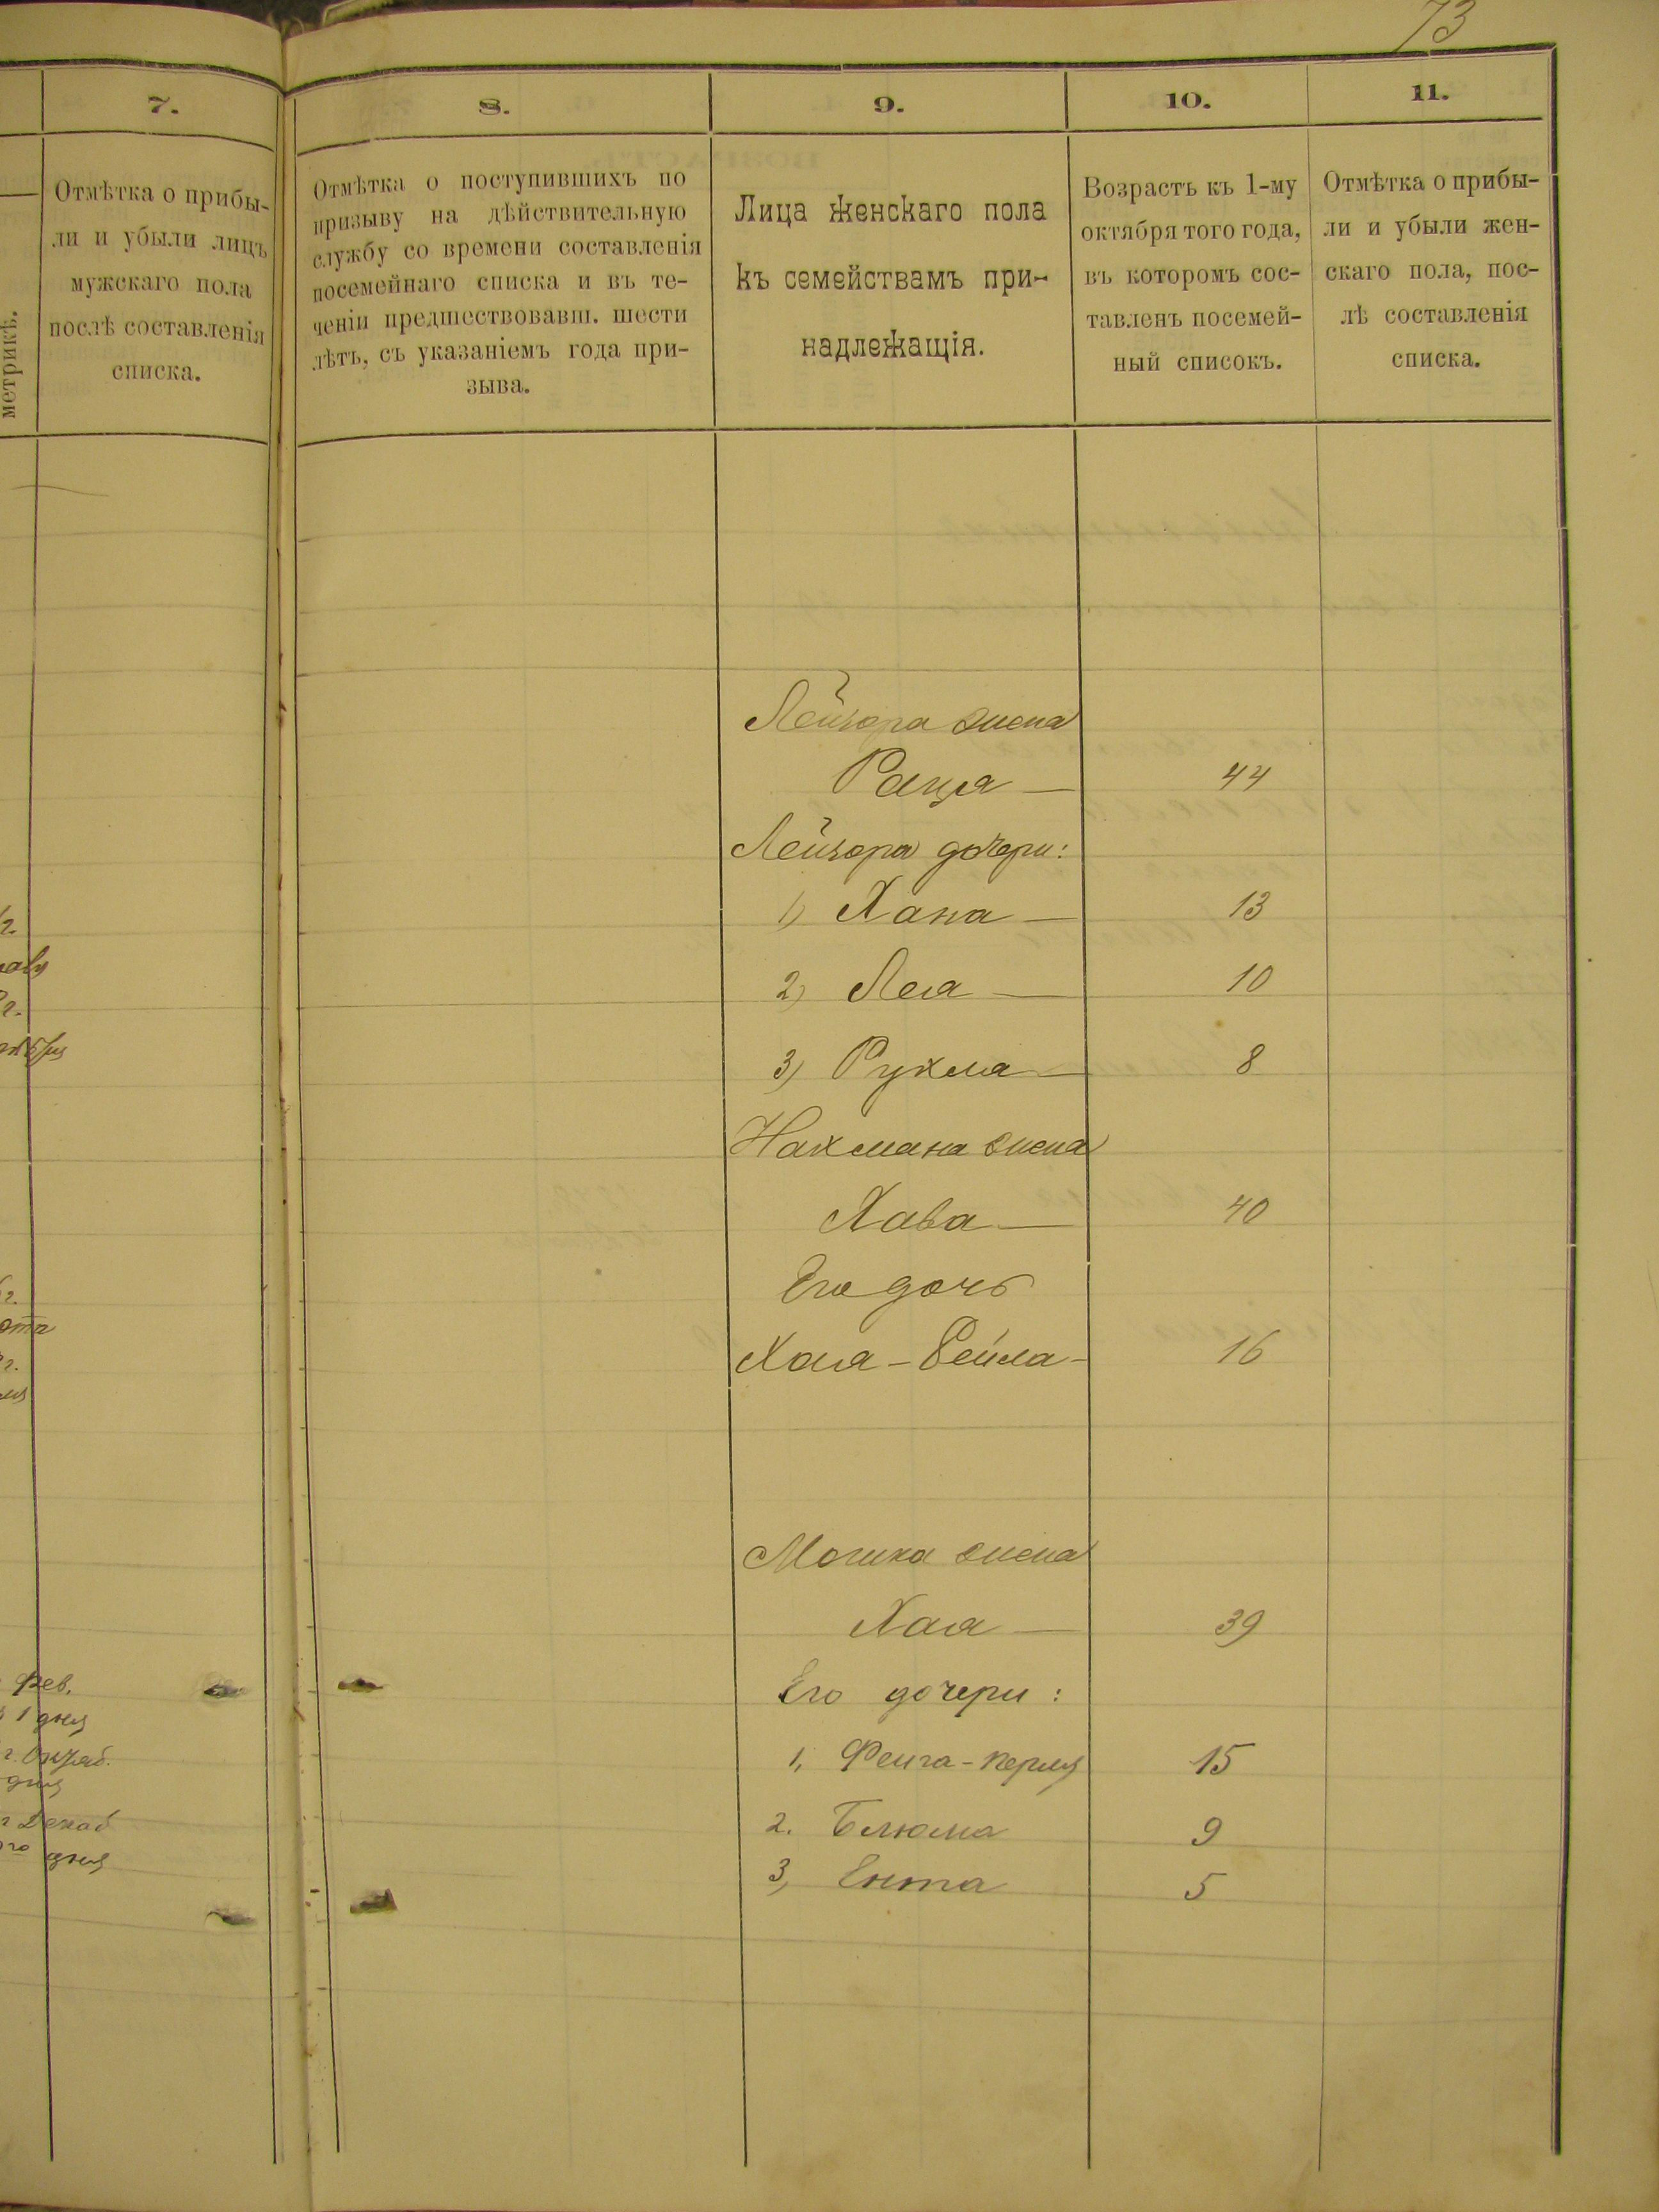 73
7.
8.
9.
10.
11.
метрикѣ.
Отмѣтка о прибы-
ли и убыли лицъ
мужскаго пола
послѣ составленія
списка.
Отмѣтка о поступившихъ по
призыву на дѣйствительную
службу со времени составленія
посемейнаго списка и въ те-
ченіи предшествовавш. шести
лѣтъ, съ указаніемъ года при-
зыва.
Лица женскаго пола
къ семействамъ при-
надлежащія.
Возрастъ къ 1-му
октября того года,
въ которомъ сос-
тавленъ посемей-
ный списокъ.
Отмѣтка о прибы-
ли и убыли жен-
скаго пола, пос-
лѣ составленія
списка.
Лейзора жена
Раця — 44
Лейзора дочери:
1) Хана — 13
2) Лея — 10
3) Рухля — 8
Нахмана жена
Хава — 40
Его дочь
Хая-Бейла- 16
Мошка жена
Хая — 39
Его дочери:
1, Фейга-Перля 15
2. Блюма 9
3, Ента 5
Фев.
1 дня
г. Октяб.
дня
г Декаб
го дня